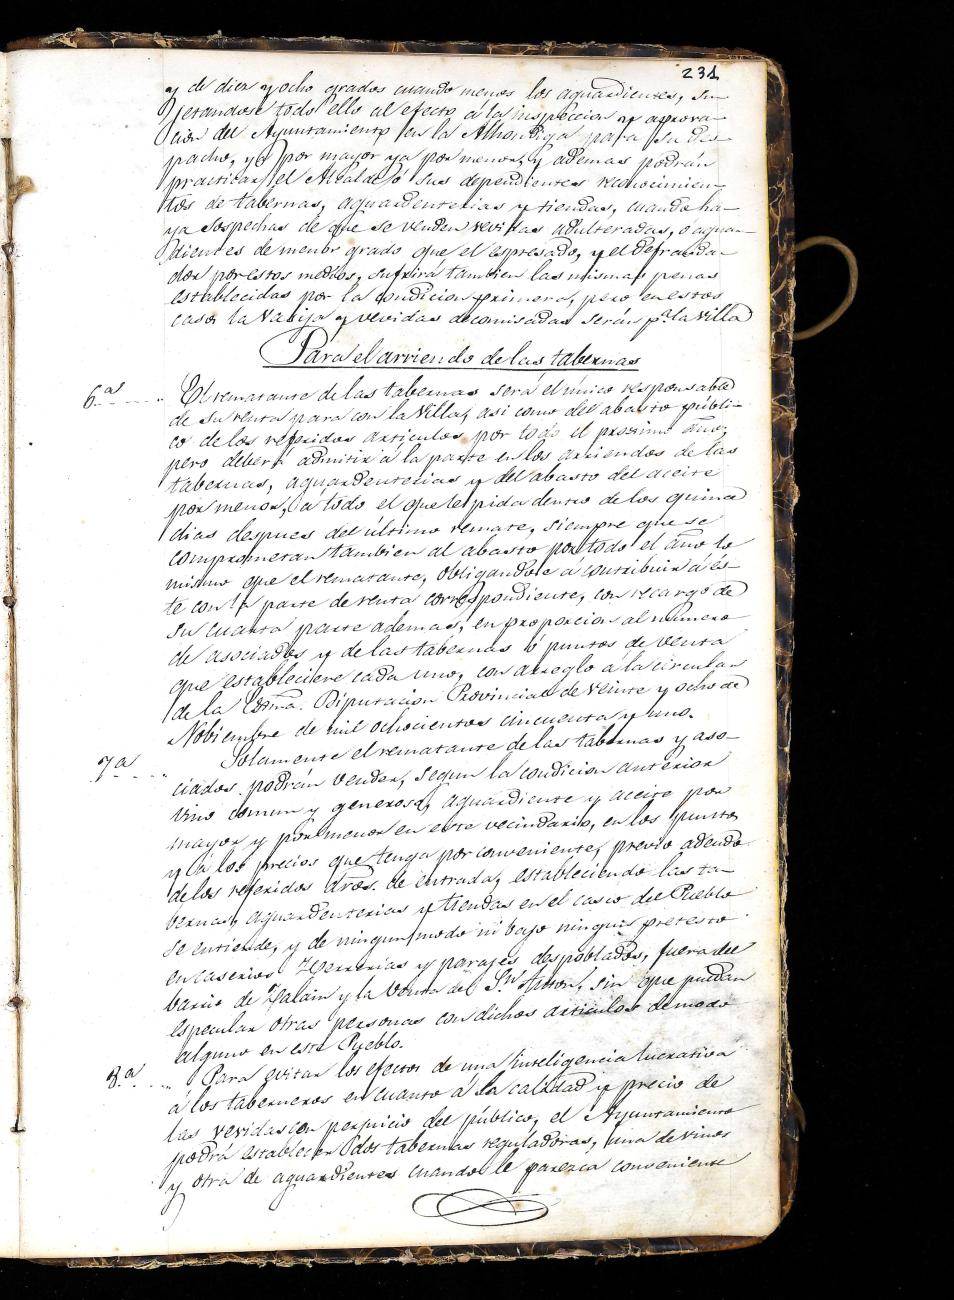 231
y de diez y ocho grados cuando menos los aguardientes, su-
jetandose todo ello al efecto á la inspeccion y aprova-
cion del Ayuntamiento en la Alhondiga para su des-
pacho, ya por mayor ya por menor, y ademas podrán
practicar el Alcalde ó sus dependientes reconocimien-
tos de tabernas, aguardenterias y tiendas, cuando ha-
ya sospechas de que se venden vevidas adulteradas, o aguar-
dientes de menor grado que el espresado, y el defrauda-
dor por estos medios, sufrirá tambien las mismas penas
establecidas por la condicion primera, pero en estos
casos la Vasija y vevidas decomisadas serán p.ª la Villa
Para el arriendo de las tabernas
6.ª El rematante de las tabernas será el único responsable
de su renta para con la Villa, asi como del abasto públi-
co de los referidos articulos por todo el procsimo año;
pero deberá admitir á la parte en los arriendos de las
tabernas, aguardenterias y del abasto del aceite
por menor, á todo el que le pida dentro de los quince
dias despues del último remate, siempre que se
comprometan tambien al abasto por todo el año lo
mismo que el rematante, obligandose á contribuir á és-
te con la parte de renta correspondiente, con recargo de
su cuarta parte ademas, en proporcion al número
de asociados y de las tabernas ó puntos de venta
que estableciere cada uno, con arreglo a la circular
de la Exma. Diputacion Provincial de veinte y ocho de
Nobiembre de mil ochocientos cincuenta y uno.
7.ª Solamente el rematante de las tabernas y aso-
ciados podrán vender, segun la condicion anterior
vino comun y generoso, aguardiente y aceite por
mayor y por menor en este vecindario, en los puntos
y á los precios que tenga por conveniente, previo adeudo
de los referidos dros. de entrada, estableciendo las ta-
bernas, aguardenterias y tiendas en el casco del Pueblo
se entiende, y de ningun modo ni bajo ningun pretesto
en caserios Herrerias y parajes despoblados, fuera del
barrio de Zalain y la Venta de S.n Anton, sin que puedan
especular otras personas con dichos articulos de modo
alguno en este Pueblo.
8.ª Para evitar los efectos de una inteligencia lucrativa
á los taberneros en cuanto á la calidad y precio de
las vevidas con perjuicio del público, el Ayuntamiento
podrá establecer dos tabernas reguladoras, una de vinos
y otra de aguardientes cuando le parezca conveniente